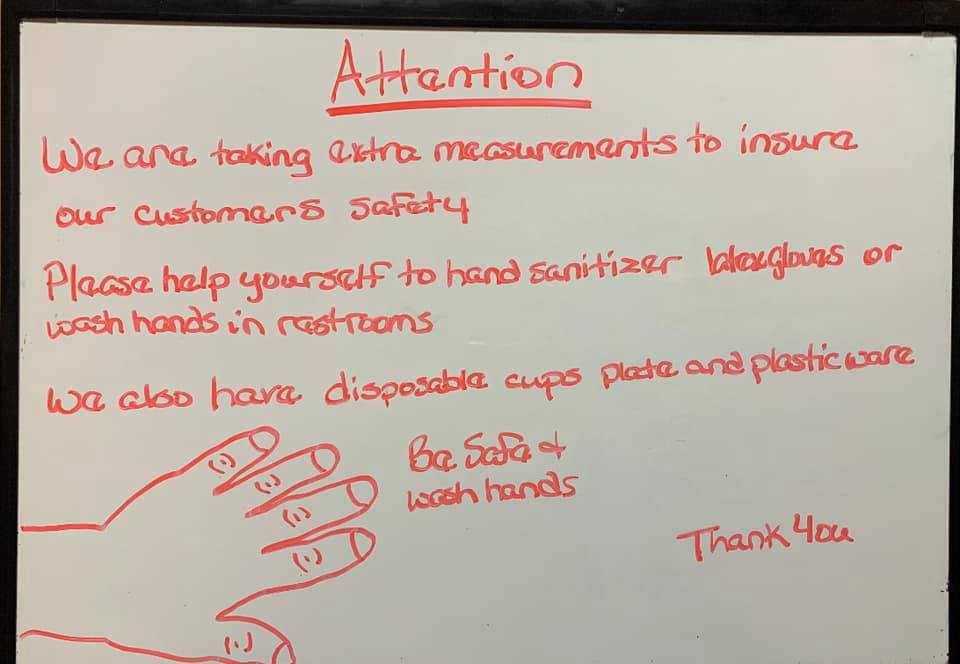 Attention
We are taking extra measurements to insure
our customers safety
Please help yourself to hand sanitizer latex gloves or
wash hands in restrooms
we also have disposable cups plate and plastic ware
Be Safe &
wash hands
Thank You